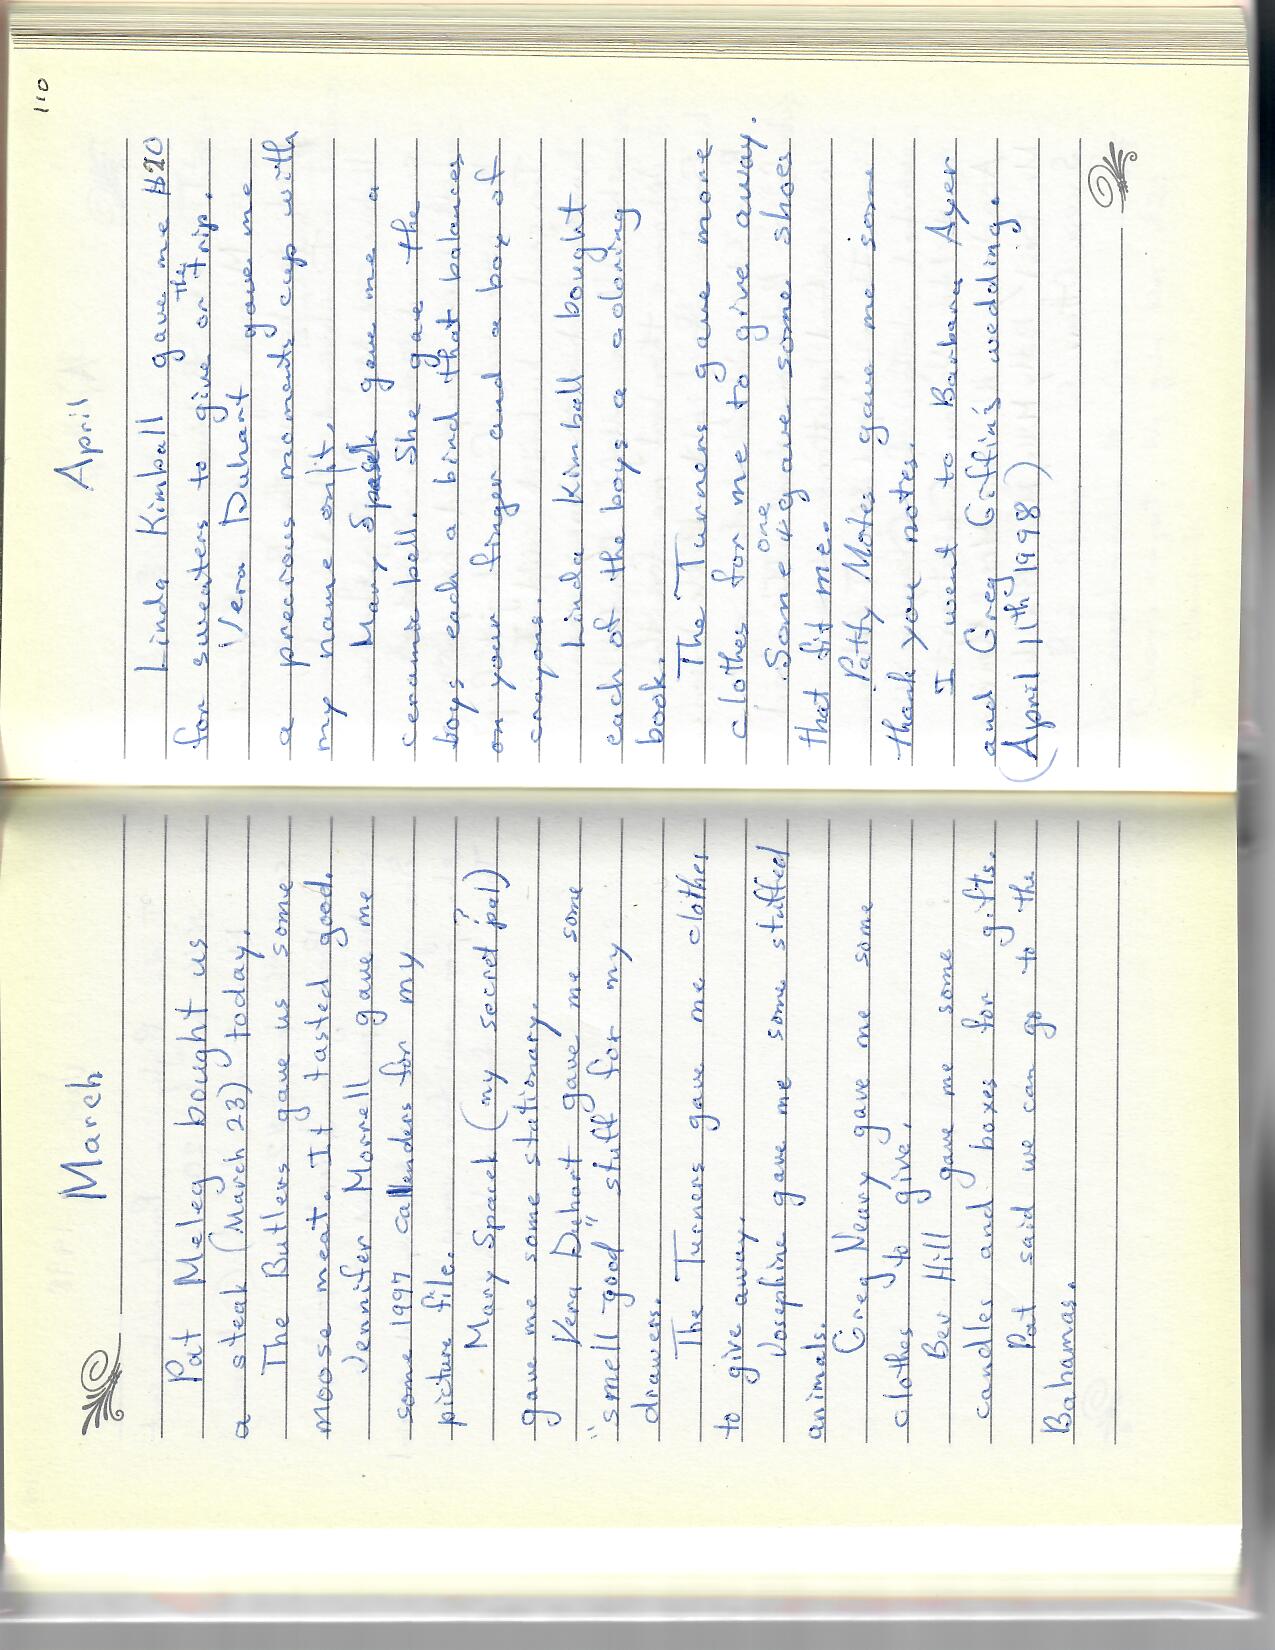 March
Pat Meleg bought us
a steak (March 23) today.
The Butlers gave us some
moose meat. It tasted good.
Jennifer Morrell gave me
some 1997 callenders for my
picture file.
Mary Spacek (my secret pal)
?
gave me some stationary.
Vera Duhart gave me some
"smell good" stuff for my
drawers.
The Turners gave me clothes
to give away.
Josephine gave me some stuffed
animals.
Greg Neary gave me some
clothes to give.
Bev Hill gave me some
candles and boxes for gifts.
Pat said we can go to the
Bahamas.
110
April
Linda Kimball gave me $20
for sweaters to give on the trip.
Vera Duhart gave me
a precious moments cup with
my name on it.
Mary gave me a
ceramic bell. She gae the
boys each a bird that balances
on your finger and a box of
crayons.
Linda Kimball bought
each of the boys a coloring
book.
The Turners gave more
clothes for me to give away.
Some one gave some shoes
that fit me.
Patty Motes gave me some
thank you notes.
I went to Barbara Ayer
and Greg wedding.
(April 11th 1998)